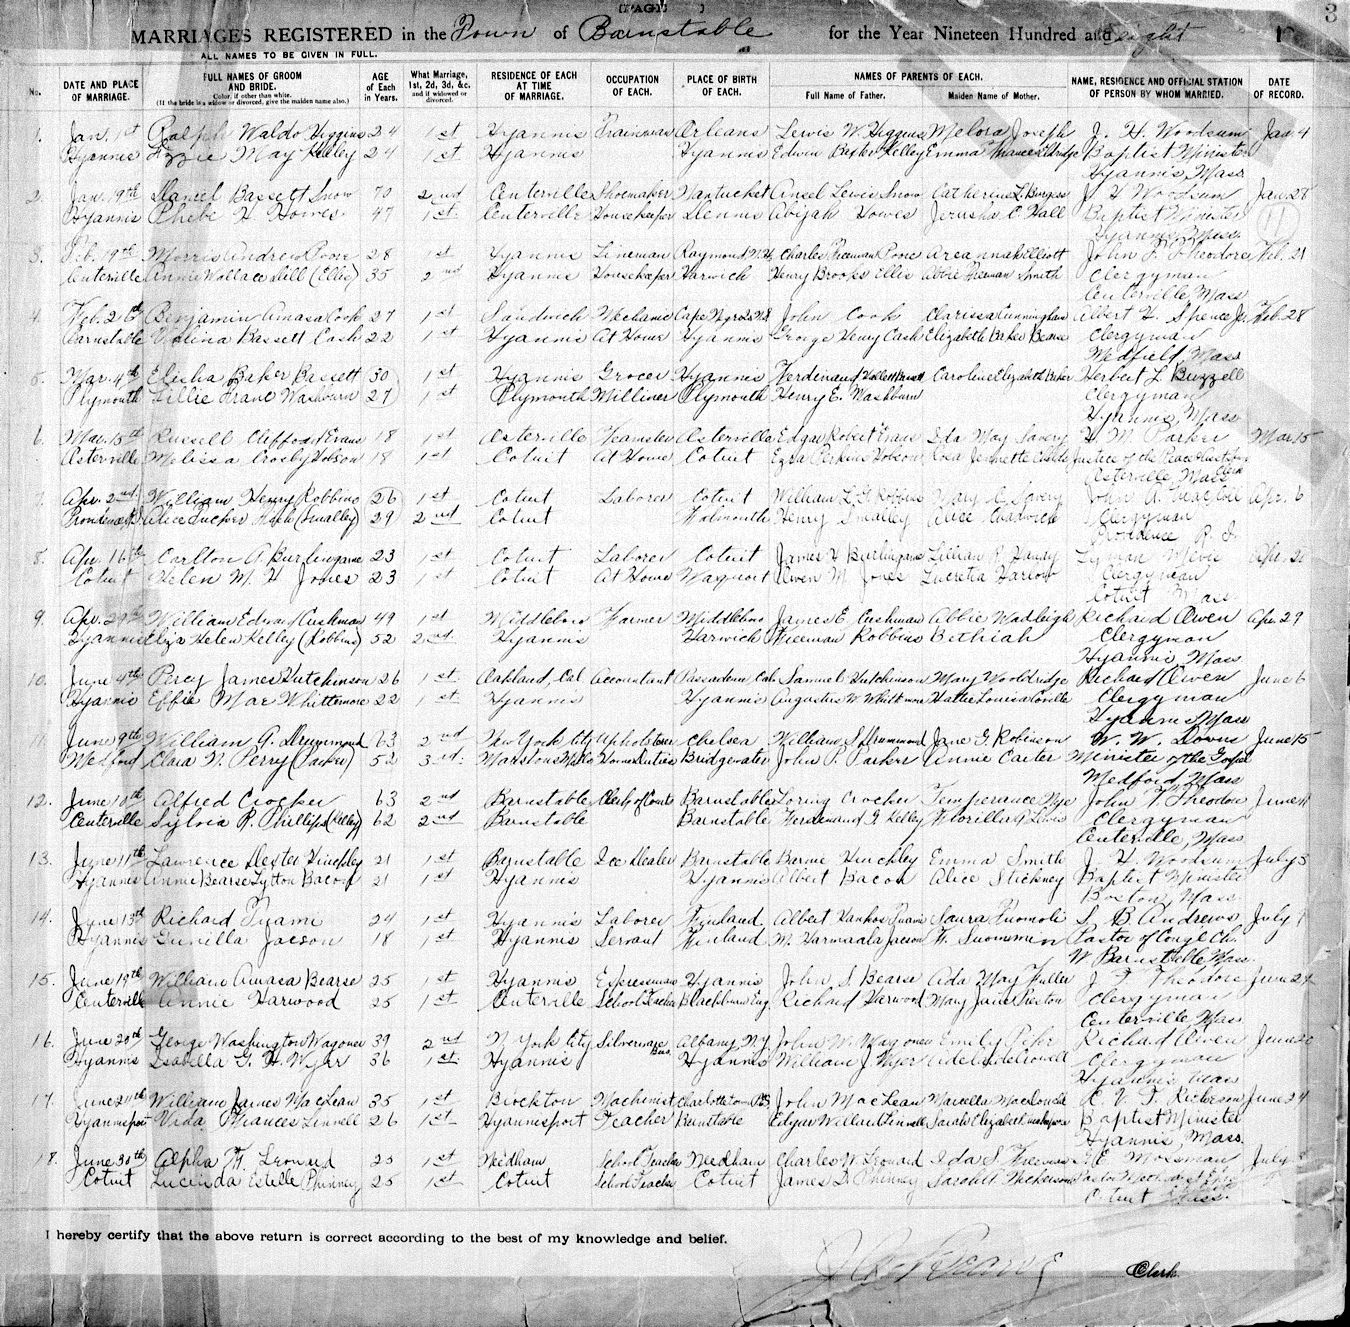 [PAGE ]
3
MARRIAGES REGISTERED in the Town of Barnstable for the Year Nineteen Hundred and Eight
ALL NAMES TO BE GIVEN IN FULL.
No. DATE AND PLACE OF MARRIAGE. FULL NAMES OF GROOM AND BRIDE. Color, if other than white. (If the bride is a widow or divorced, give the maiden name also.) AGE of Each in Years. What Marriage, 1st, 2d, 3d, &c. and if widowed or divorced. RESIDENCE OF EACH AT TIME OF MARRIAGE. OCCUPATION OF EACH. PLACE OF BIRTH OF EACH. NAMES OF PARENTS OF EACH. Full Name of Father. Maiden Name of Mother. NAME, RESIDENCE AND OFFICIAL STATION OF PERSON BY WHOM MARRIED. DATE OF RECORD.
1. Jan. 1st Ralph Waldo Higgins 24 1st Hyannis Trainman Orleans Lewis W. Higgins Melora Joseph J. H. Woodsum Jan. 4
Hyannis Lizzie May Kelley 24 1st Hyannis Hyannis Edwin Kelley Emma Frances Eldridge Baptist Minister
Hyannis, Mass
2. Jan. 19th Daniel Bassett Snow 70 2nd Centerville Shoemaker Nantucket Ansel Lewis Snow Catherine L. Burgess J H Woodsum Jan. 28
Hyannis Phebe H. Howes 47 1st Centerville Housekeeper Dennis Abijah Howes Jerusha C. Hall Baptist Minister 11
Hyannis, Mass.
3. Feb. 19th Morris Andrew Poore 28 1st Hyannis Lineman Raymond N.H. Charles Freeman Poore Elliott John F. Theodore Feb. 21
Centerville Annie Wallace Sill (Ellis) 35 2nd Hyannis Housekeeper Harwich Henry Brooks Ellis Abbie Freeman Smith Clergyman
Centerville, Mass
4. Feb. 26th Benjamin Amasa Cook 27 1st Sandwich Mechanic Cape John Cook Clarissa Cunningham Albert H. Spence Jr. Feb. 28
Barnstable Velina Bassett Cash 22 1st Hyannis At Home Hyannis George Henry Cash Elizabeth Baker Bearse Clergyman
Medfield, Mass
5. Mar. 4th Elisha Baker Bassett 30 1st Hyannis Grocer Hyannis Ferdinand Hallett Bassett Caroline Elizabeth Baker Herbert L. Buzzell
Plymouth Lillie Washburn 27 1st Plymouth Milliner Plymouth Henry E. Washburn Clergyman
Hyannis, Mass
6. Mar. 15th Russell Clifford Evans 18 1st Osterville Teamster Osterville Edgar Robert Evans Ida May Savery H. M. Parker Mar. 15
Osterville Melissa Crosby Hobson 18 1st Cotuit At Home Cotuit Ezra Perkins Hobson Rosa Jennette Childs Justice of the Peace
Osterville Mass Clerk
7. Apr. 2nd. William Henry Robbins 26 1st Cotuit Laborer Cotuit William L. F. Robbins Mary C. Savery John A. Apr. 6
Alice Tucker (Smalley) 29 2nd Cotuit Falmouth Henry Smalley Alice Chadwick Clergyman
Providence R. I.
8. Apr. 16th Carlton A. Burlingame 23 1st Cotuit Laborer Cotuit James H. Burlingame Lillian R. Handy Lyman Apr. 21
Cotuit Helen M. H. Jones 23 1st Cotuit At Home Waquoit Owen M. Jones Lucretia Harlow Clergyman
Cotuit Mass
9. Apr. 29th William Edward Cushman 49 1st Middleboro Farmer Middleboro James E. Cushman Abbie Wadleigh Richard Owen Apr. 29
Hyannis Eliza Helen Kelley (Robbins) 52 2nd. Hyannis Harwich Freeman Robbins Bethiah Clergyman
Hyannis, Mass
10. June 4th Percy James Hutchinson 26 1st. Oakland, Cal Accountant Pasadena Cal. Samuel Hutchinson Mary Wooldridge Richard Owen June 6
Hyannis Effie Mae Whittemore 22 1st. Hyannis Hyannis Augustus W Whittemore Hattie Louisa Clergyman
Hyannis Mass
11. June 9th William A. Drummond 63 2nd New York City Upholsterer Chelsea William S. Drummond Jane G. Robinson W. W. Downs June 15
Medford Clara N. Perry (Parker) 52 3rd. Marstons Mills Home Duties Bridgewater John P. Parker Annie Carter Minister of the Gospel
Medford, Mass
12. June 10th Alfred Crocker 63 2nd Barnstable Clerk of Courts Barnstable Loring Crocker Temperance Nye John F. Theodore June 11
Centerville Sylvia R. Phillips (Kelley) 62 2nd Barnstable Barnstable Ferdinand G. Kelley Lewis Clergyman
Centerville, Mass
13. June 11th Lawrence Dexter Hinckley 21 1st Barnstable Ice Dealer Barnstable Barnie Hinckley Emma Smith J. H. Woodsum July 3
Hyannis Annie Bearse Lytton Bacon 21 1st Hyannis Hyannis Albert Bacon Alice Stickney Baptist Minister
Boston, Mass
14. June 13th Richard Tyami 24 1st Hyannis Laborer Finland Albert Laura Tuomola S. B. Andrews July 1
Hyannis Gunilla Jacson 18 1st Hyannis Servant Finland M. Harmaala Jacson W. Suomminen Pastor of Cong'l Ch.
W Barnstable Mass.
15. June 19th William Amasa Bearse 25 1st Hyannis Expressman Hyannis John S. Bearse Ada May Fuller J F Theodore June 24
Centerville Annie Harwood 25 1st Centerville School Teacher Blackburn Eng. Richard Harwood Mary Jane Clergyman
Centerville Mass
16. June 20th George Washington Wagoner 39 2nd N. York City Silverware Bus. Albany N.Y. John W. Wagoner Emily Richard Owen June 20
Hyannis Isabella G. H. Wyer 36 1st Hyannis Hyannis William J. Wyer Adelaide Crowell Clergyman
Hyannis Mass
17. June 24th William James MacLean 35 1st Brockton Machinist Charlottetown John MacLean Marcella MacDonald R. V. T. Rickerson June 24
Hyannisport Vida Frances Linnell 26 1st Hyannisport Teacher Barnstable Edgar Willard Linnell Sarah Elizabeth Baptist Minister
Hyannis, Mass
18. June 30th Alpha H. Leonard 25 1st Needham School Teacher Needham Charles W. Leonard Ida S. G. E. Mossman July 8
Cotuit Lucinda Estelle Phinney 25 1st Cotuit School Teacher Cotuit James D. Phinney Sarah H. Nickerson Pastor
Cotuit Mass.
I hereby certify that the above return is correct according to the best of my knowledge and belief.
Clerk.